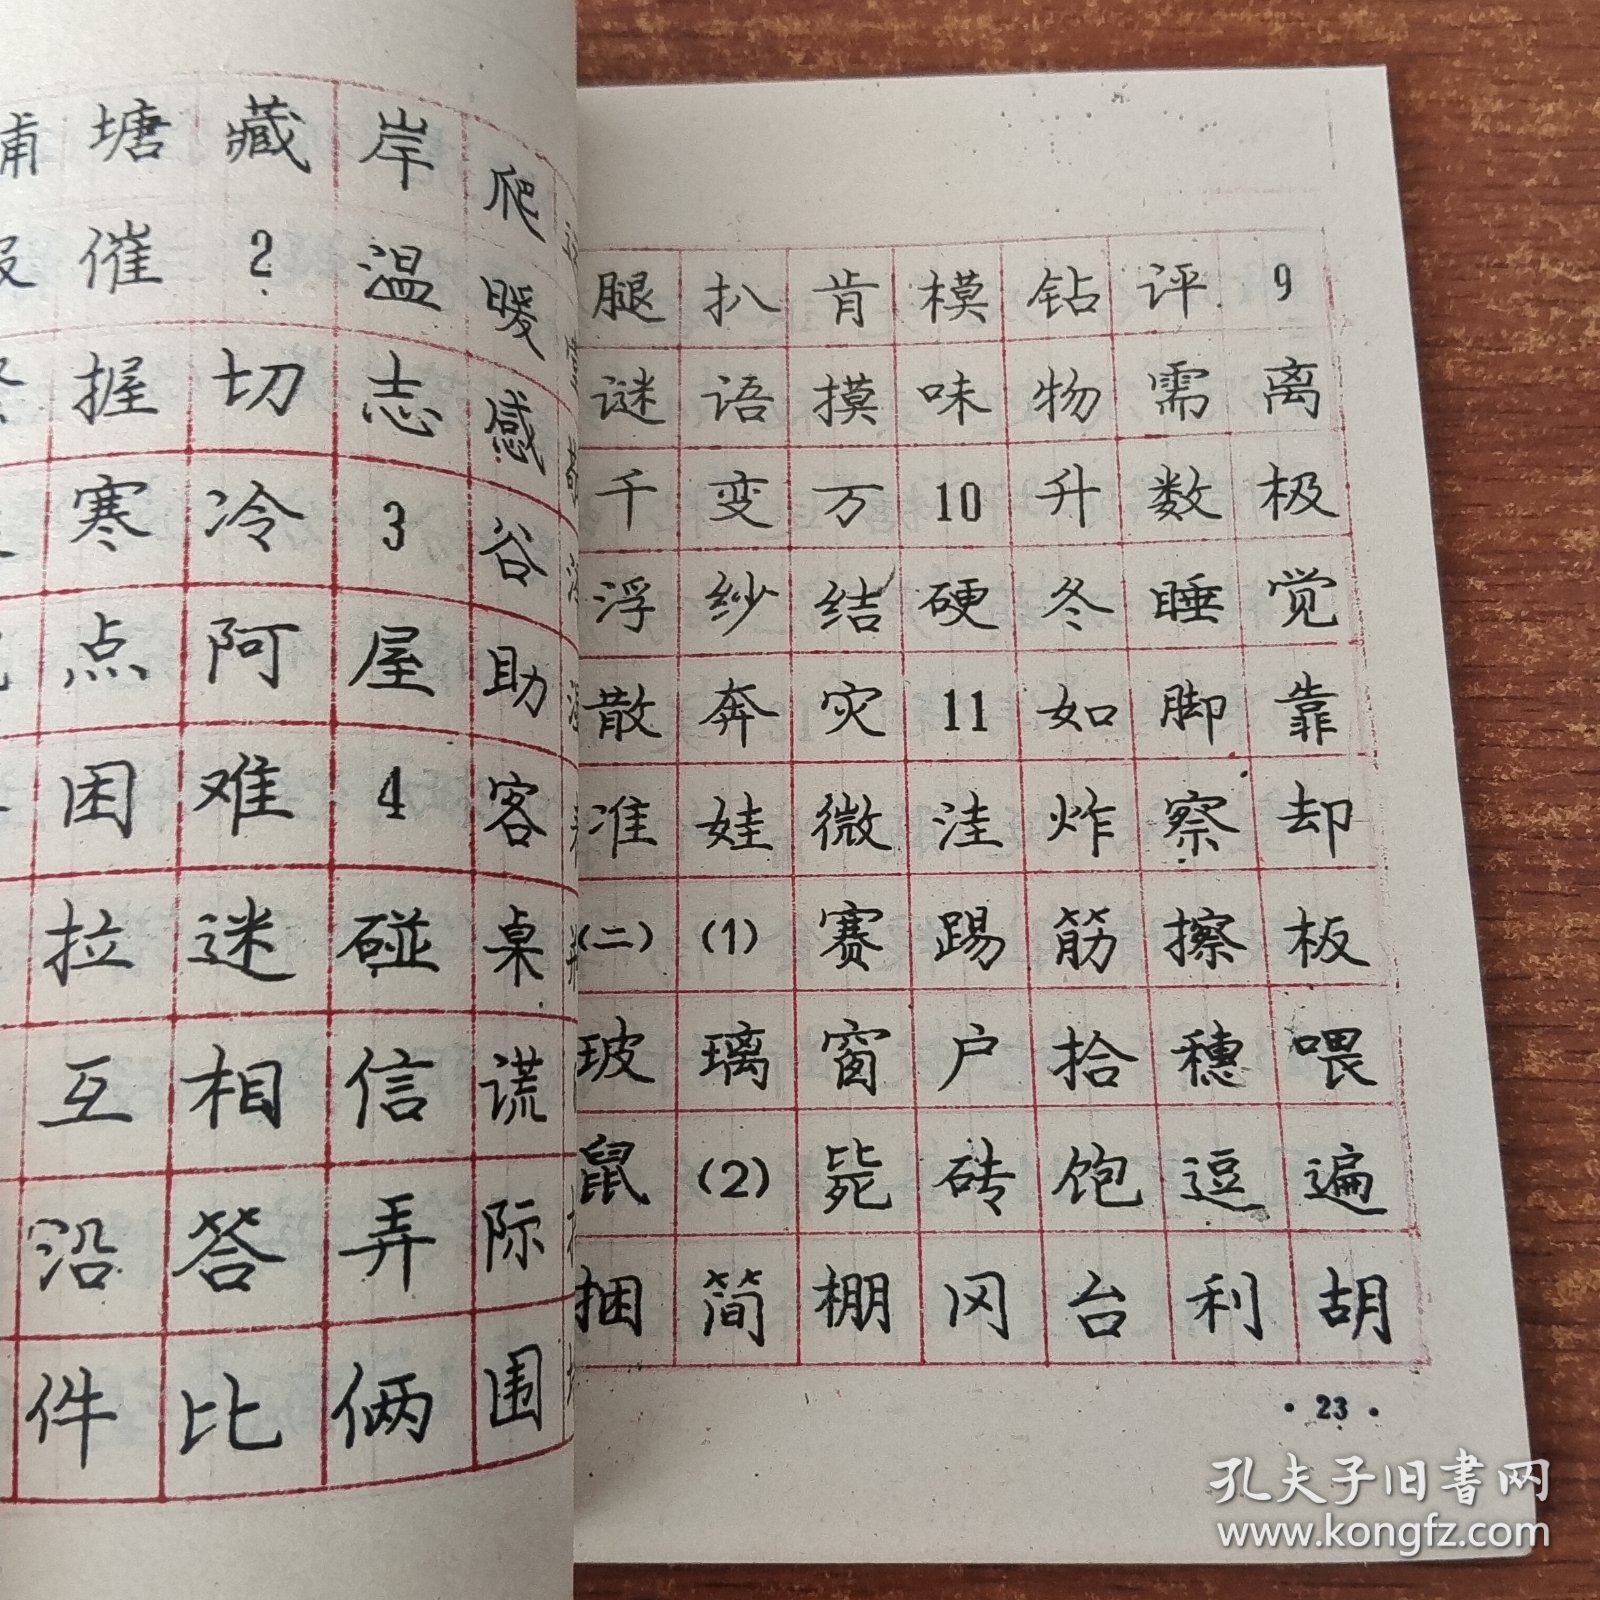 塘藏岸爬
催2温暖
握切志感
寒冷3谷
点阿屋助
困难4客
拉迷碰桌
互相信谎
沿答弄际
件比俩围
腿扒肯模钻评9
谜语摸味物需离
千变万10升数极
浮纱结硬冬睡觉
散奔灾11如脚靠
准娃微洼炸察却
(二)(1)赛踢筋擦板
玻璃窗户拾穗喂
鼠(2)毙砖饱逗遍
捆简棚冈台利胡
·23·
孔夫子旧书网
www.kongfz.com